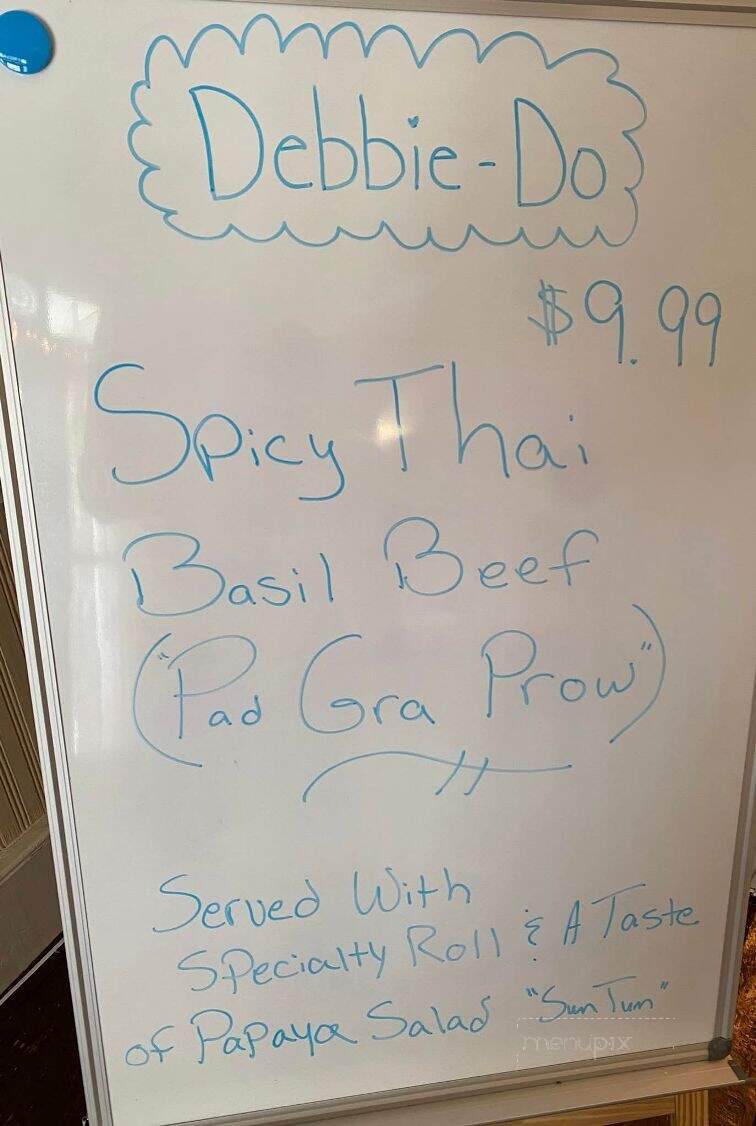 Debbie-Do
$9.99
Spicy Thai
Basil Beef
("Pad Gra Prow")
Served With
Specialty Roll & A Taste
of Papaya Salad "Sum Tum"
menupix